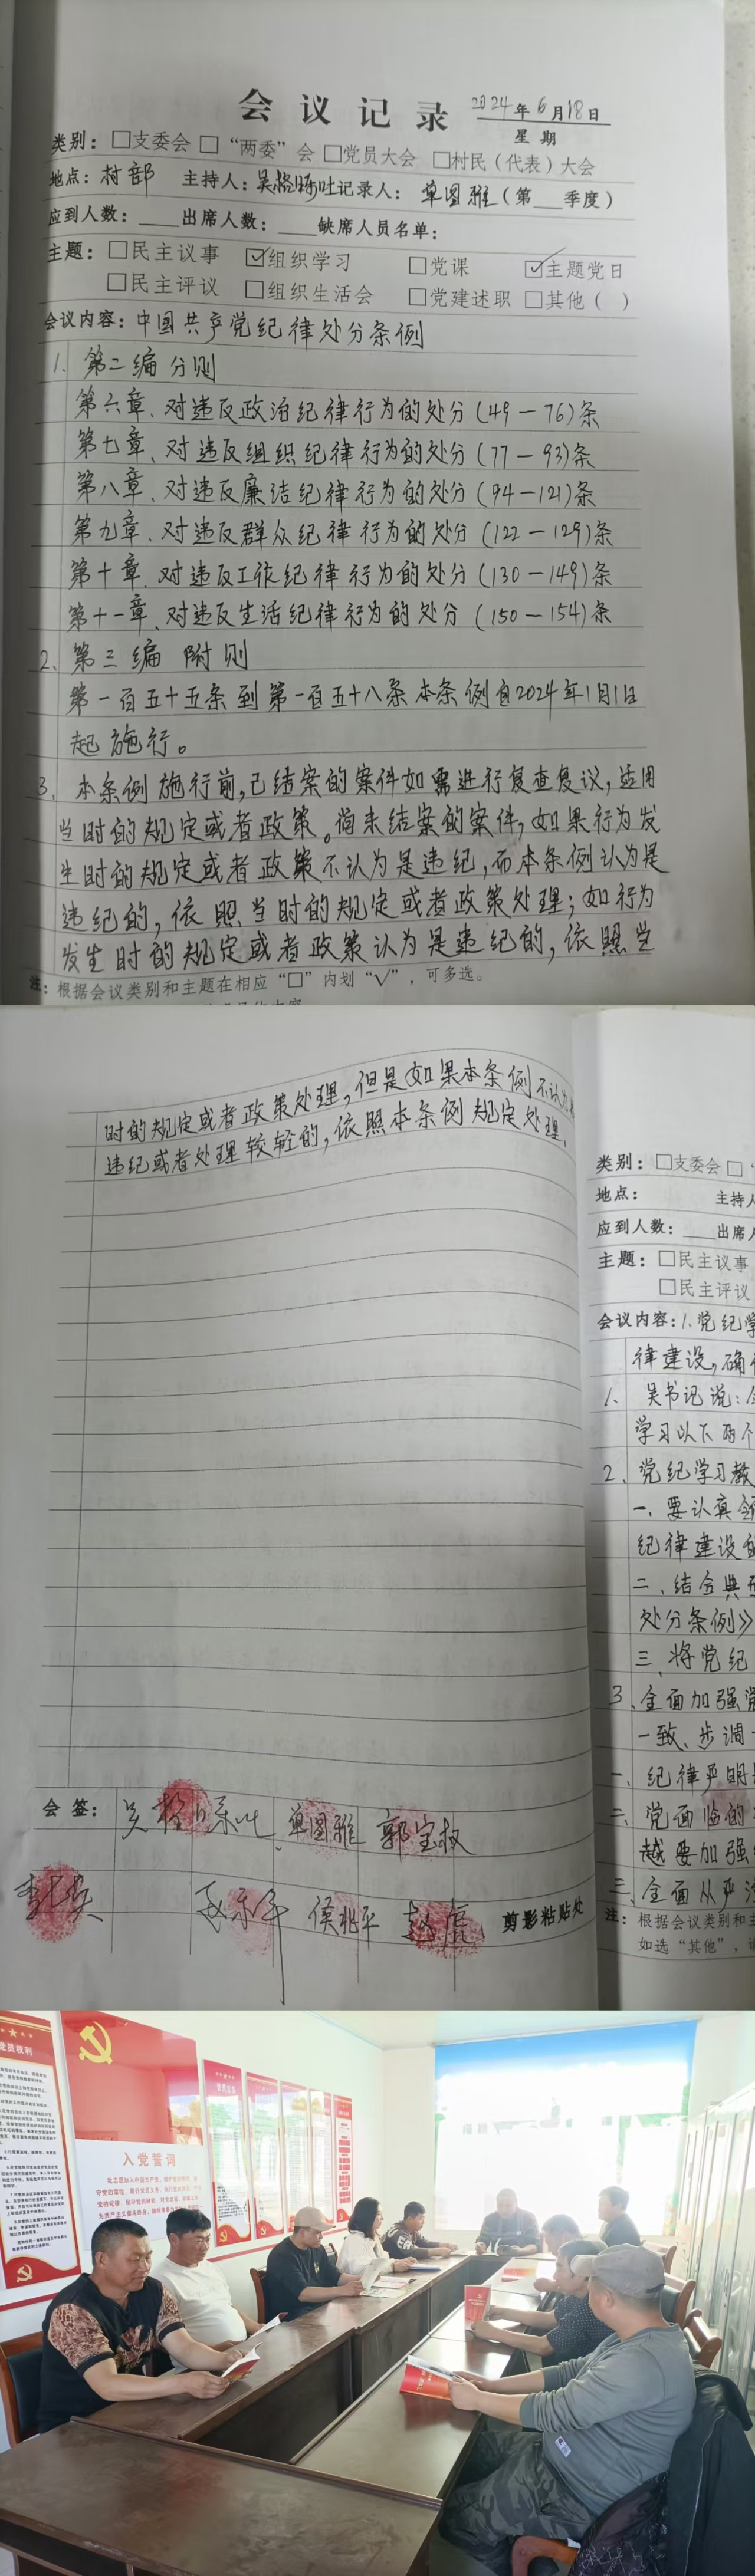 会议记录
2024年6月18日
星期
类别：□支委会 □“两委”会 □党员大会 □村民（代表）大会
地点：村部 主持人：吴格日勒吐 记录人：草图雅（第__季度）
应到人数：____出席人数：____缺席人员名单：
主题：□民主议事 ☑组织学习 □党课 ☑主题党日
□民主评议 □组织生活会 □党建述职 □其他（ ）
会议内容：中国共产党纪律处分条例
1. 第二编分则
第六章、对违反政治纪律行为的处分(49－76)条
第七章、对违反组织纪律行为的处分(77－93)条
第八章、对违反廉洁纪律行为的处分(94－121)条
第九章、对违反群众纪律行为的处分(122－129)条
第十章、对违反工作纪律行为的处分(130－149)条
第十一章、对违反生活纪律行为的处分(150－154)条
2、第三编 附则
第一百五十五条到第一百五十八条本条例自2024年1月1日
起施行。
3、本条例施行前，已结案的案件如需进行复查复议，适用
当时的规定或者政策。尚未结案的案件，如果行为发
生时的规定或者政策不认为是违纪，而本条例认为是
违纪的，依照当时的规定或者政策处理；如行为
发生时的规定或者政策认为是违纪的，依照当
注：根据会议类别和主题在相应“□”内划“√”，可多选。
时的规定或者政策处理，但是如果本条例不认为是
违纪或者处理较轻的，依照本条例规定处理。
会签：
草图雅 郭宝权
侯兆平
剪影粘贴处
类别：□支委会 □
地点： 主持人
应到人数：____出席人
主题：□民主议事
□民主评议
会议内容：1.党纪学
律建设，确
1. 吴书记说：
学习以下两个
2、党纪学习教
一、要认真领
纪律建设的
二、结合典型
处分条例》
三、将党纪
3、全面加强党
一致、步调一
一、纪律严明
二、党面临的
越要加强
三、全面从严治
注：根据会议类别和主
如选“其他”，
党员权利
入党誓词